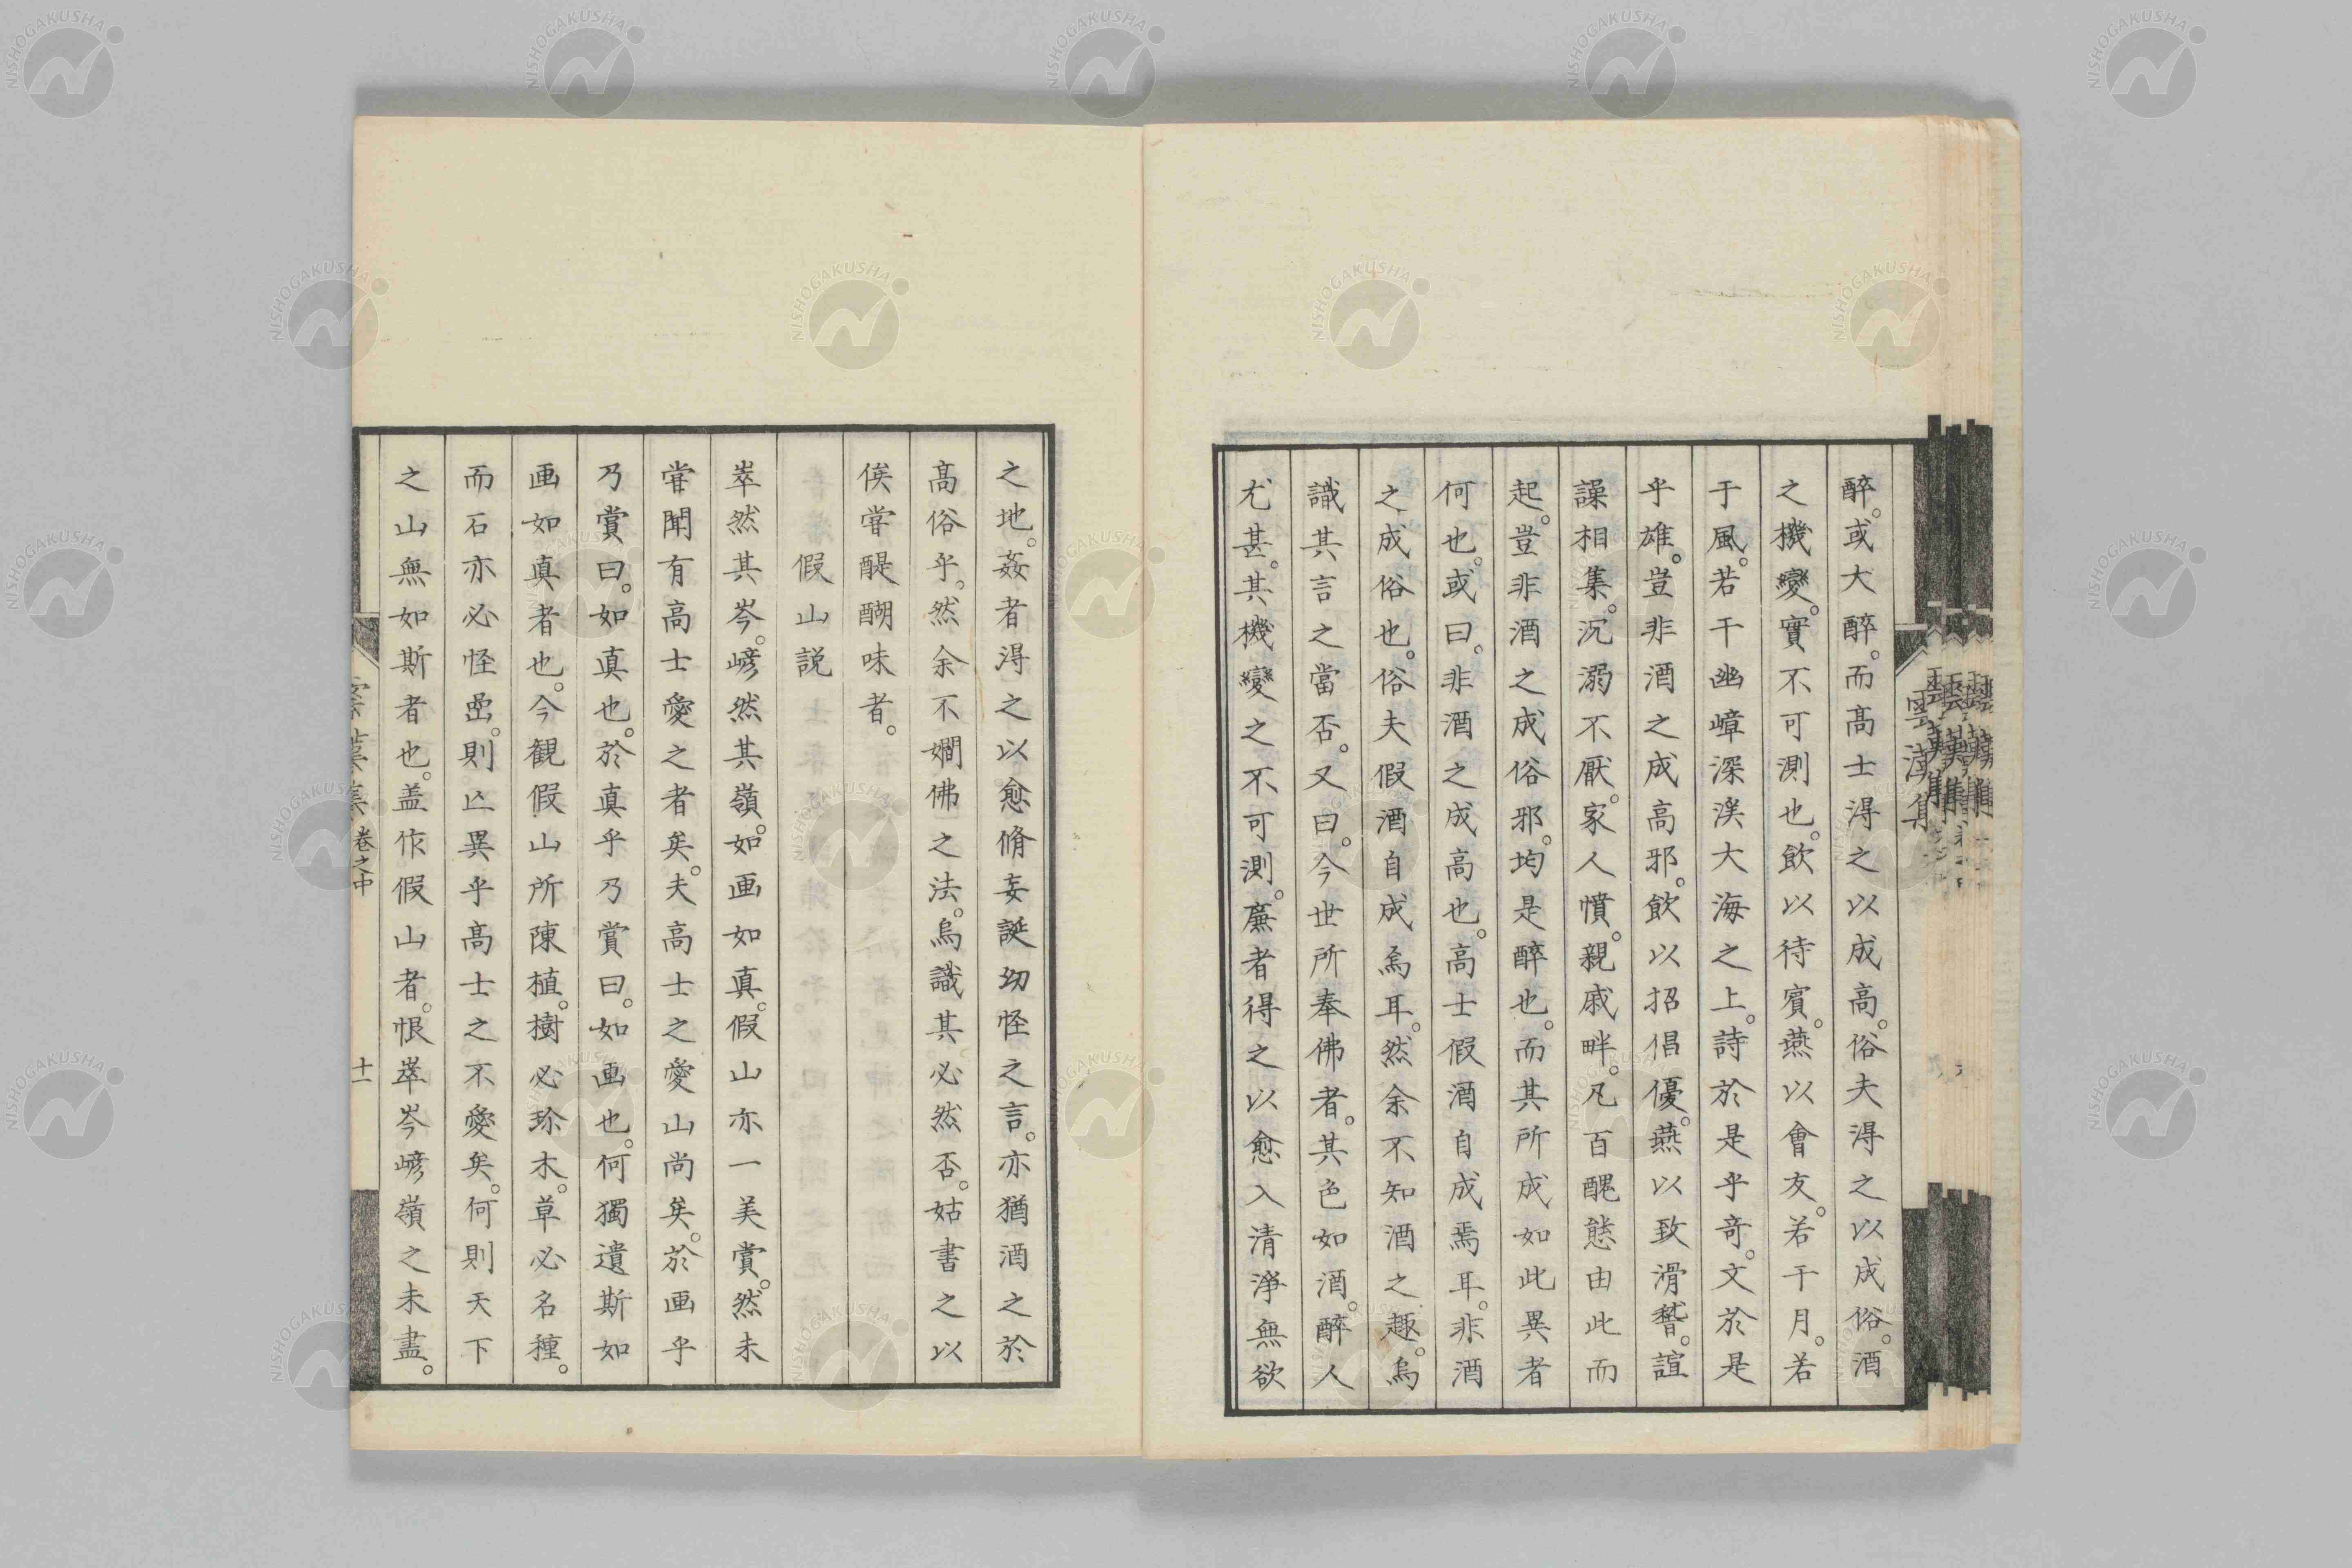 醉。或大醉。而髙士淂之以成高。俗夫淂之以成俗。酒
之機變。實不可測也。飲以待賓。燕以會友。若干月。若
于風。若干幽嶂深溪大海之上。詩於是乎竒。文於是
乎雄。豈非酒之成高邪。飲以招倡優。燕以致滑稽。諠
譟相集。沉溺不厭。家人憤。親戚畔。凡百醜態由此而
起。豈非酒之成俗邪。均是醉也。而其所成如此異者
何也。或曰。非酒之成高也。高士假酒自成焉耳。非酒
之成俗也。俗夫假酒自成焉耳。然余不知酒之趣。烏
識其言之當否。又曰。今世所奉佛者。其色如酒。醉人
尤甚。其機變之不可測。廉者得之以愈入清淨無欲
之地。姦者淂之以愈脩妄誕幼怪之言。亦猶酒之於
髙俗乎。然余不嫺佛之法。烏識其必然否。姑書之以
俟甞醍醐味者。
假山説
崒然其岑。嵃然其嶺。如画如真。假山亦一美賞。然未
甞聞有高士愛之者矣。夫高士之愛山尚矣。於画乎
乃賞曰。如真也。於真乎乃賞曰。如画也。何獨遺斯如
画如真者也。今観假山所陳植。樹必珎木。草必名種。
而石亦必怪嵒。則亾異乎髙士之不愛矣。何則天下
之山無如斯者也。盖作假山者。恨崒岑嵃嶺之未盡。
雲漢集
卷之中
十一
NISHOGAKUSHA